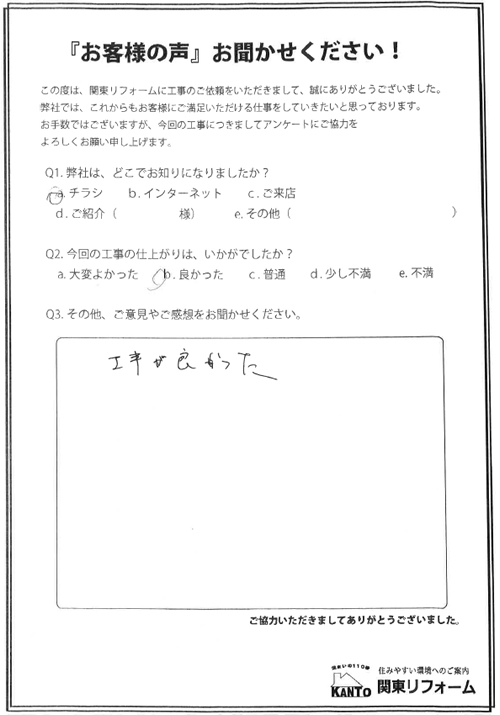 『お客様の声』お聞かせください！
この度は、関東リフォームに工事のご依頼をいただきまして、誠にありがとうございました。
弊社では、これからもお客様にご満足いただける仕事をしていきたいと思っております。
お手数ではございますが、今回の工事につきましてアンケートにご協力を
よろしくお願い申し上げます。
Q1. 弊社は、どこでお知りになりましたか？
a. チラシ b. インターネット c. ご来店
d. ご紹介（ 様） e. その他（ ）
Q2. 今回の工事の仕上がりは、いかがでしたか？
a. 大変よかった b. 良かった c. 普通 d. 少し不満 e. 不満
Q3. その他、ご意見やご感想をお聞かせください。
工事が良かった
ご協力いただきましてありがとうございました。
住まいの110番
KANTO
住みやすい環境へのご案内
関東リフォーム